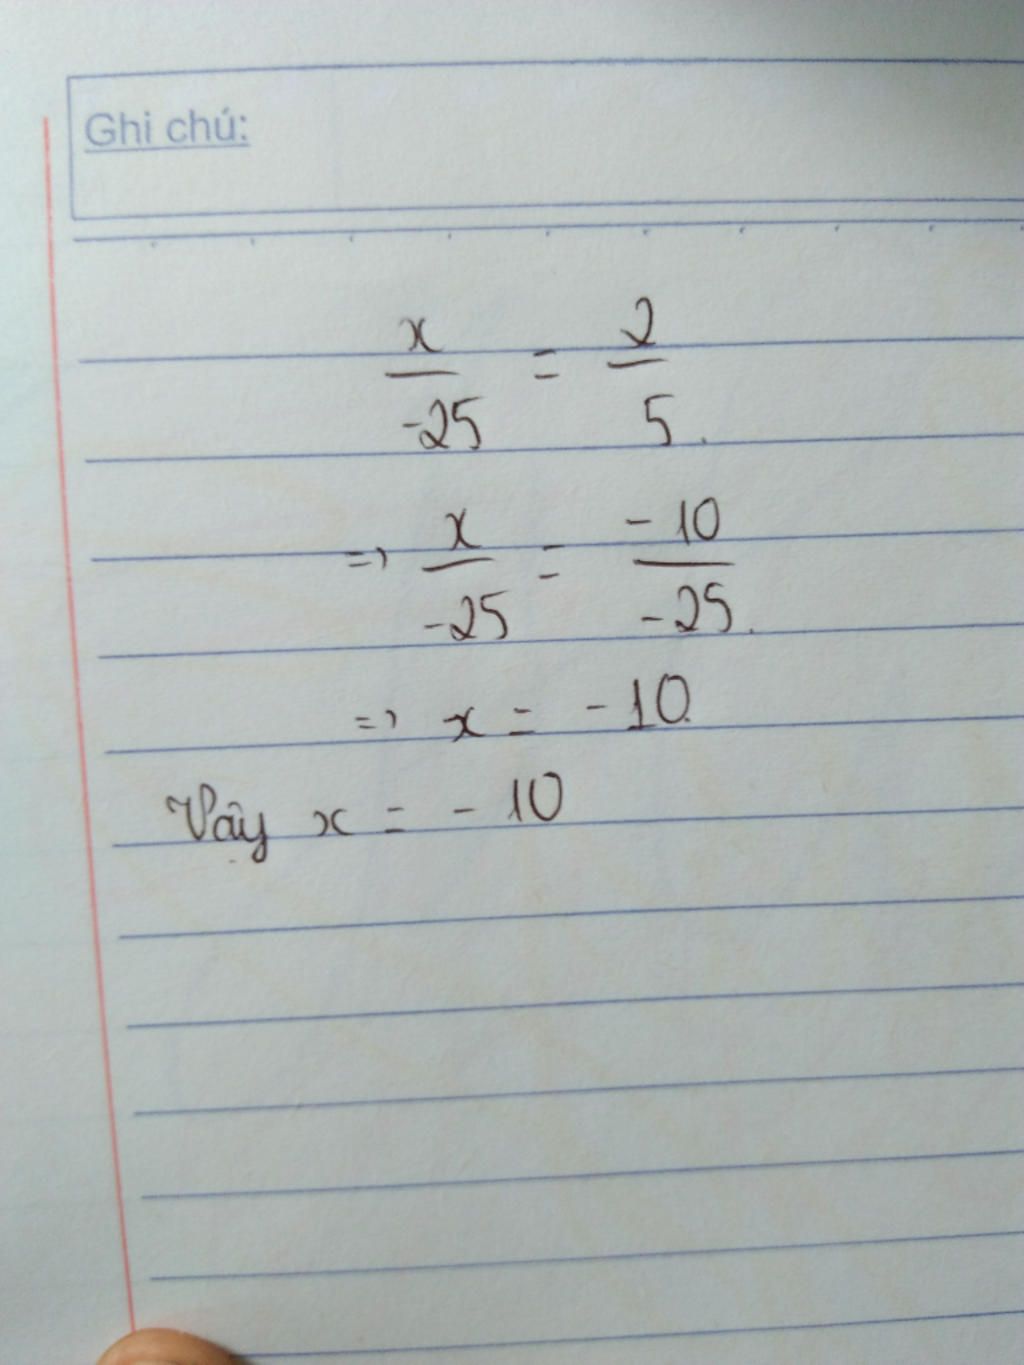 Ghi chú:
x/-25 = 2/5.
=> x/-25 = -10/-25.
=> x = -10.
Vậy x = -10